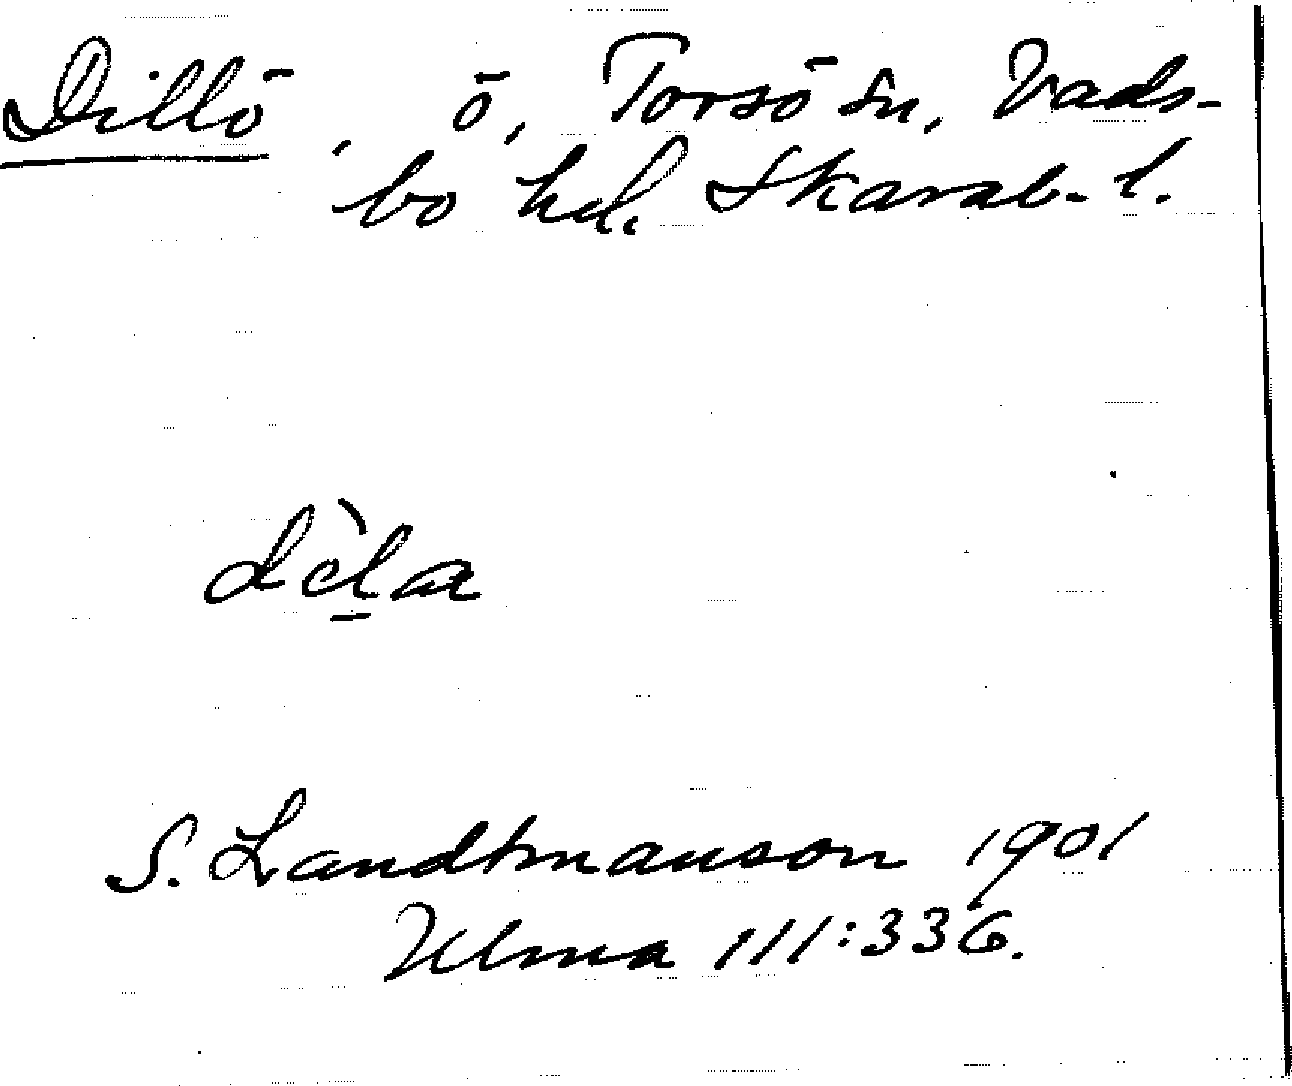 Dillö, ö, Torsö sn, Vads-
bo hd. Skarab. l.
dèḻa
S. Landtmanson 1901
Ulma 111:336.